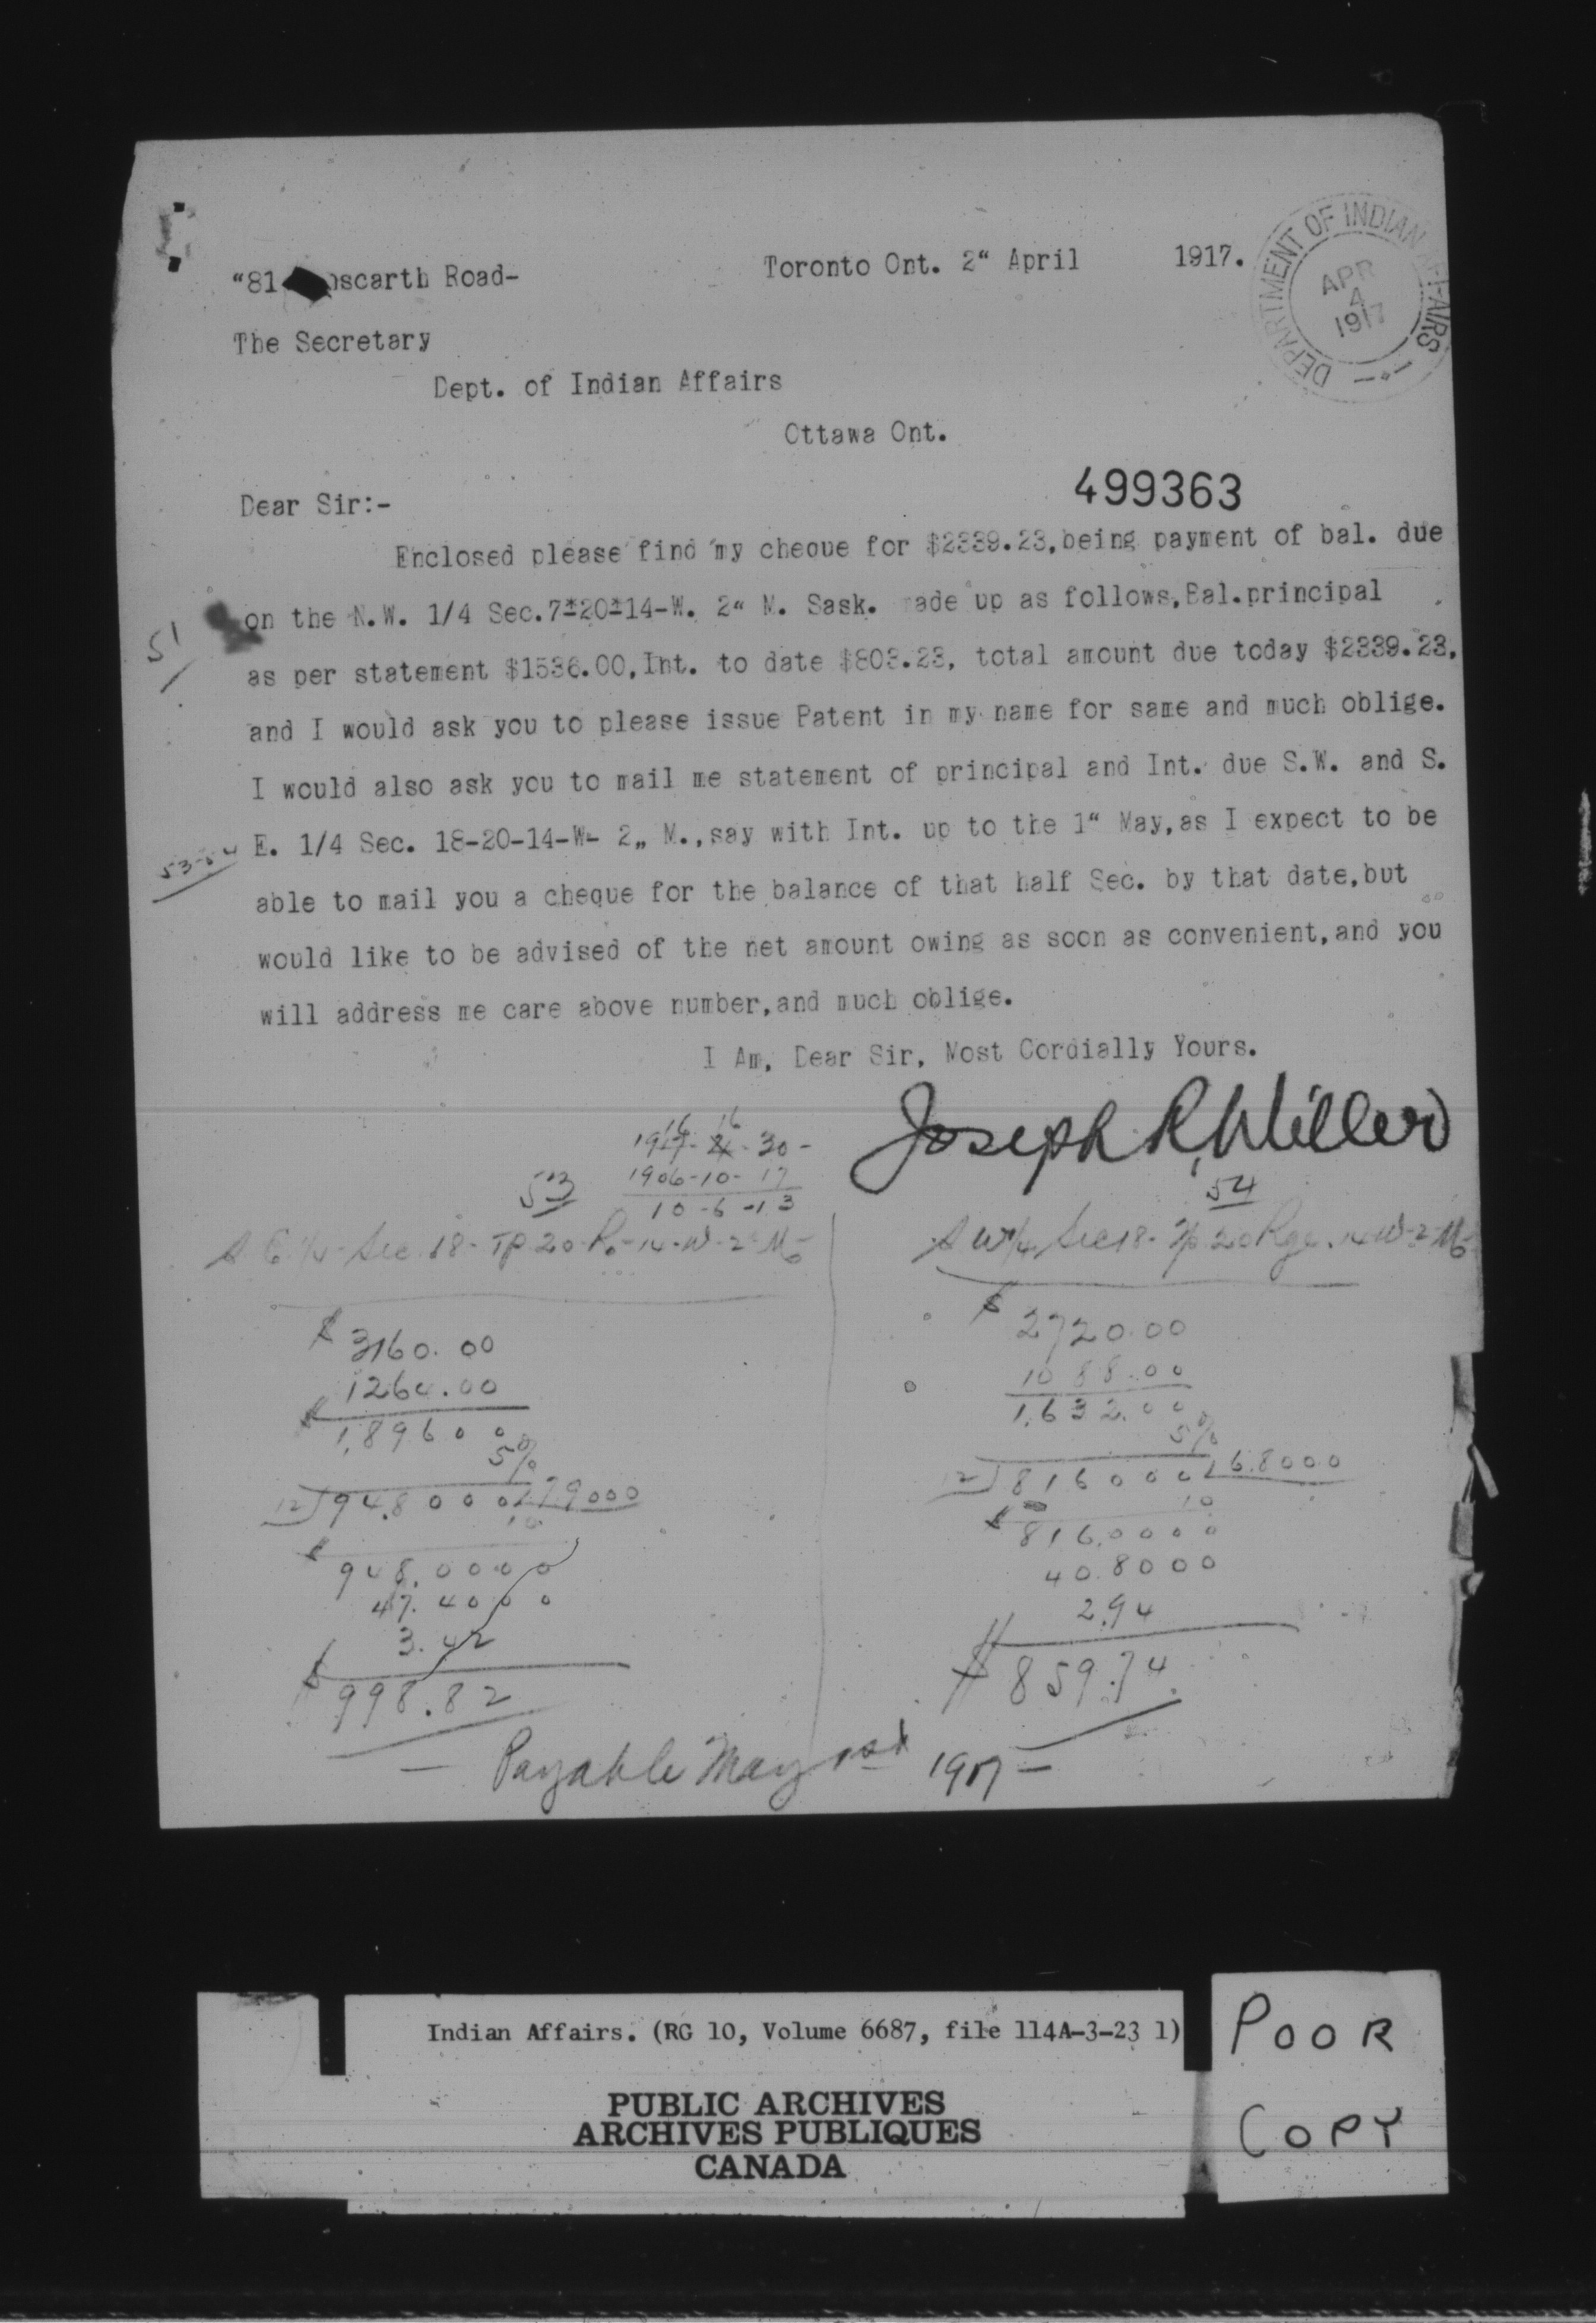 DEPARTMENT OF INDIAN AFFAIRS
APR
4
1917
"81 oscarth Road- Toronto Ont. 2" April 1917.
The Secretary
Dept. of Indian Affairs
Ottawa Ont.
499363
Dear Sir:-
Enclosed please find my cheque for $2339.23,being payment of bal. due
on the N.W. 1/4 Sec.7*20*14-W. 2" M. Sask. ade up as follows,Bal.principal
51
as per statement $1536.00,Int. to date $803.23, total amount due today $2339.23,
and I would ask you to please issue Patent in my name for same and much oblige.
I would also ask you to mail me statement of principal and Int. due S.W. and S.
53-54
E. 1/4 Sec. 18-20-14-W- 2„ M.,say with Int. up to the 1" May,as I expect to be
able to mail you a cheque for the balance of that half Sec. by that date,but
would like to be advised of the net amount owing as soon as convenient,and you
will address me care above number,and much oblige.
I Am, Dear Sir, Most Cordially Yours.
Joseph R. Miller
16 16
1917-4-30-
1906-10-17
10-6-13
53
S E 1/4 Sec. 18-TP 20-R-14-W-2 M
$3160.00
1264.00
$1,896.00
5%
12)94.8000(7.9000
10
$948.0000
47.4000
3.42
$998.82
54
S W 1/4 Sec 18-Tp 20 Rge. 14 W-2-M
$2720.00
1088.00
1,632.00
5%
12)816000(6.8000
10
$816.0000
40.8000
2.94
$859.74
- Payable May 1st 1917 -
Indian Affairs. (RG 10, Volume 6687, file 114A-3-23 1)
PUBLIC ARCHIVES
ARCHIVES PUBLIQUES
CANADA
POOR
COPY